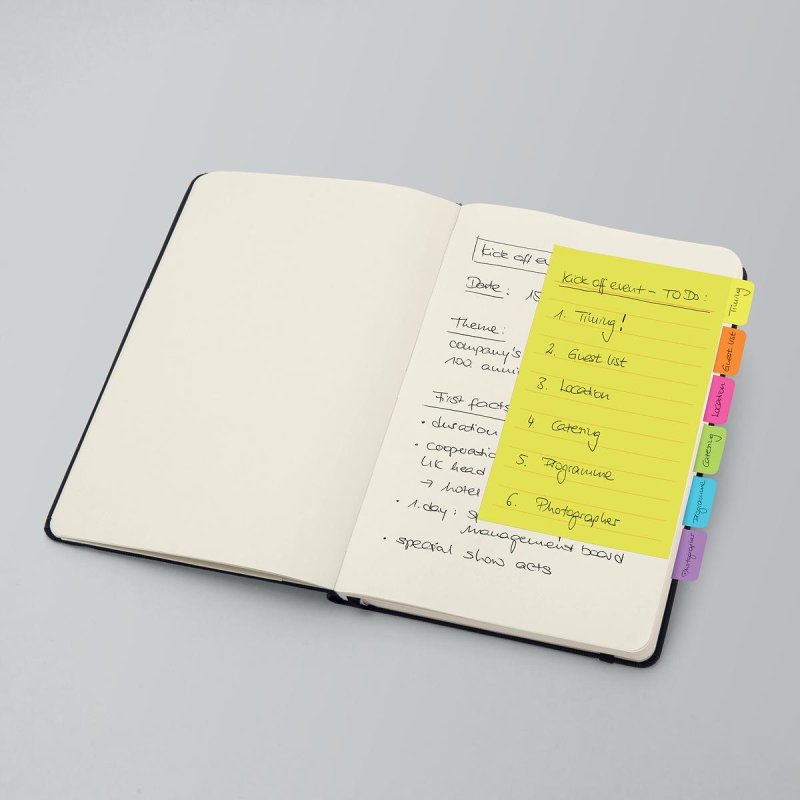 Kick off ev
Date: 15
Theme:
company's
100. anni
First facts
• duration
• cooperatio
UK head
→ hotel
• 1. day: sp
management board
• special show acts
Kick off event - TO Do:
1. Timing!
2. Guest list
3. Location
4 Catering
5. Programme
6. Photographer
Timing
Guest list
Location
Catering
Programme
Photographer